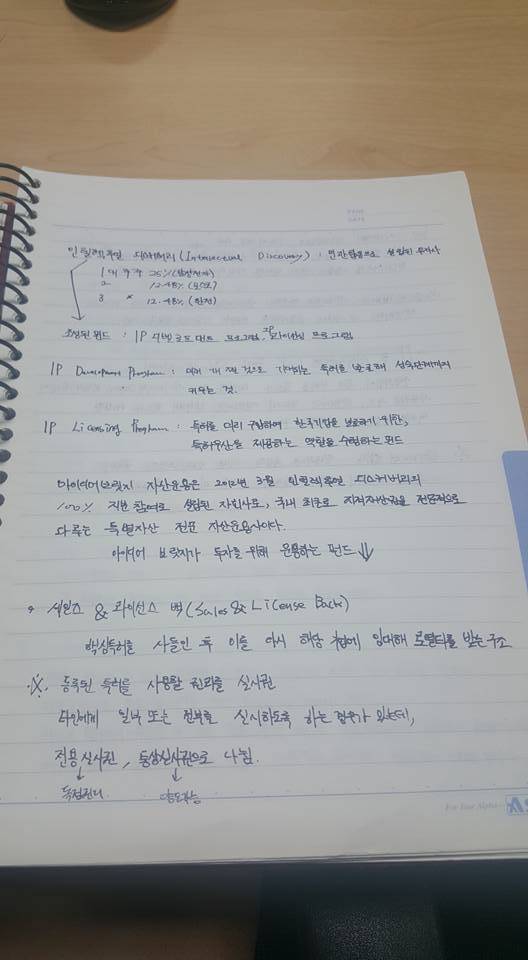 인텔렉추얼 디스커버리 (Intellectual Discovery) : 민간합동으로 설립된 투자사
1 대 주주 25% (삼성전자)
2 〃 12.48% (포스코)
3 〃 12.48% (한전)
조성된 펀드 : IP 디벨로프먼트 프로그램, IP 라이센싱 프로그램
IP Development Program : 미래 가치 것으로 기대되는 특허를 발굴해 성숙단계까지
키우는 것.
IP Licensing Program : 특허를 미리 구입하여 한국기업을 보호하기 위한,
특허우산을 제공하는 역할을 수행하는 펀드
아이디어브릿지 자산운용은 2012년 3월 인텔렉추얼 디스커버리의
100% 지분 참여로 설립된 자회사로, 국내 최초로 지적재산권을 전문적으로
다루는 특별자산 전문 자산운용사이다.
아이디어 브릿지가 투자를 위해 운용하는 펀드 ↓
세일즈 & 라이선스 백 (Sales & License Back)
핵심특허를 사들인 후 이를 다시 해당 기업에 임대해 로열티를 받는 구조
※. 등록된 특허를 사용할 권리를 실시권
타인에게 일부 또는 전부를 실시하도록 하는 경우가 있는데,
전용실시권, 통상실시권으로 나뉨.
↓ ↓
독점적
For Your Alpha